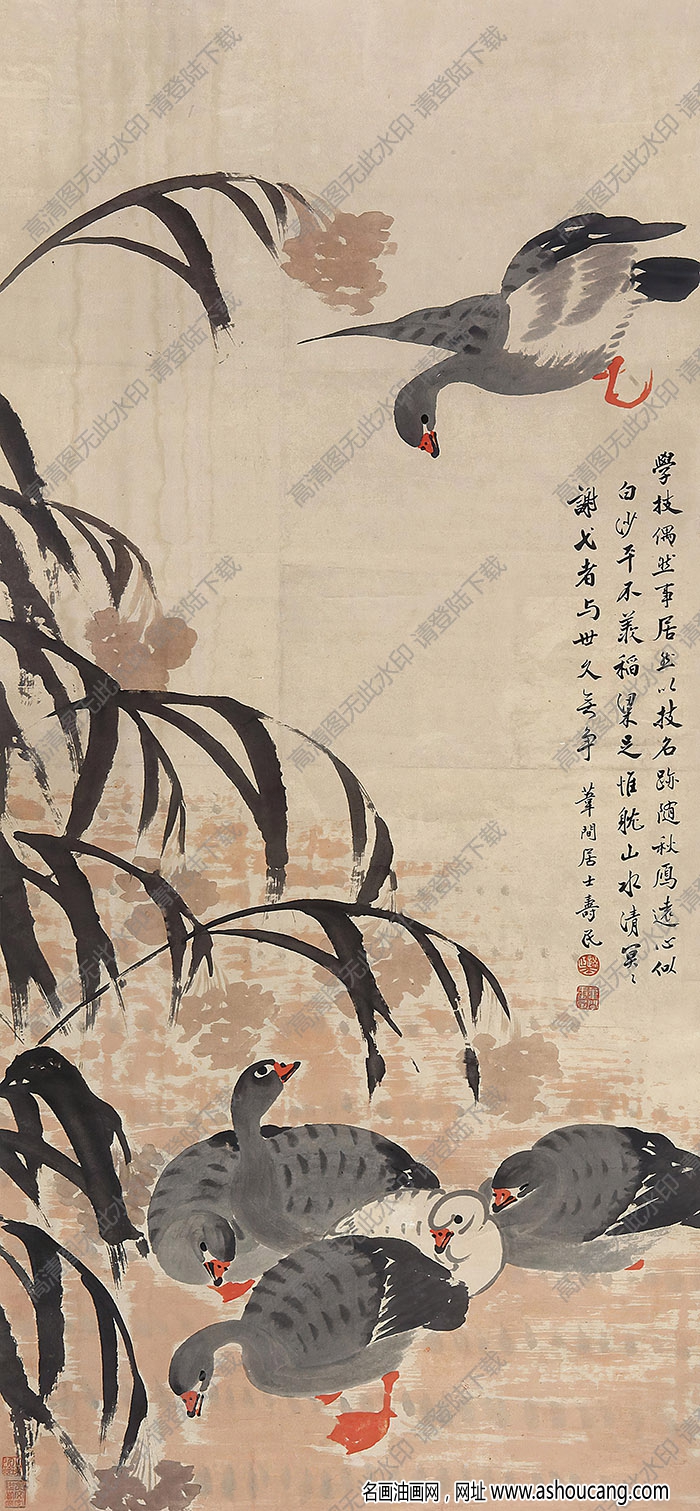 學技偶然事居然以技名跡隨秋鴈遠心似
白沙平不羨稻粱足惟耽山水清冥〻
謝弋者与世久無争
葦間居士壽民
高清图无此水印 请登陆下载
名画油画网，网址 www.ashoucang.com